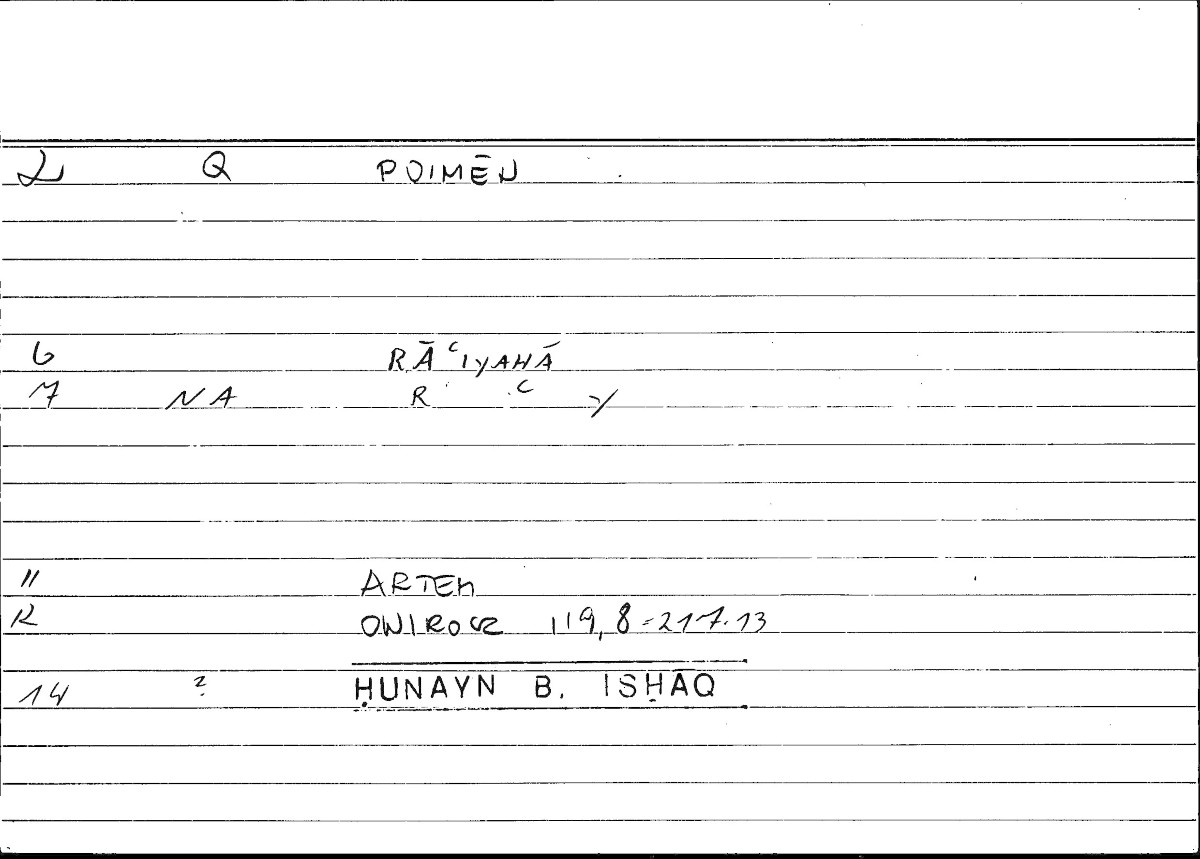 2 Q POIMĒN
6 RĀʿIYAHĀ
7 NA R ʿ Y
11 ARTEM
12 ONIROCR 119,8 = 217.13
14 ? ḤUNAYN B. ISḤĀQ